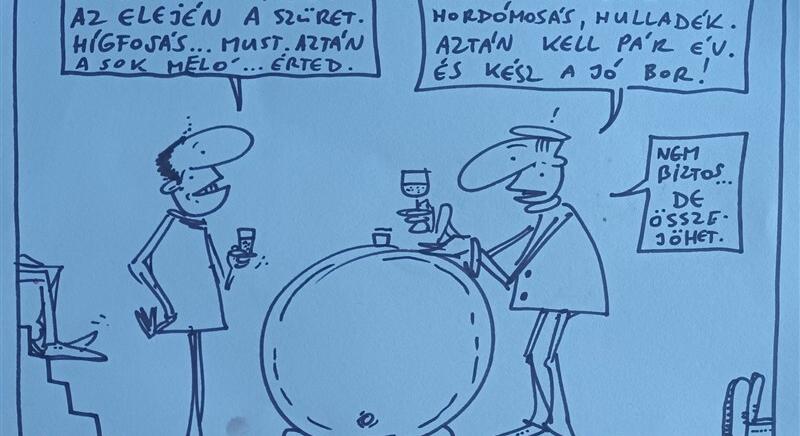 AZ ELEJÉN A SZÜRET.
HÍGFOSÁS... MUST. AZTÁN
A SOK MELÓ... ÉRTED.
HORDÓMOSÁS, HULLADÉK.
AZTÁN KELL PÁR ÉV.
ÉS KÉSZ A JÓ BOR!
NEM
BIZTOS...
DE
ÖSSZE-
JÖHET.